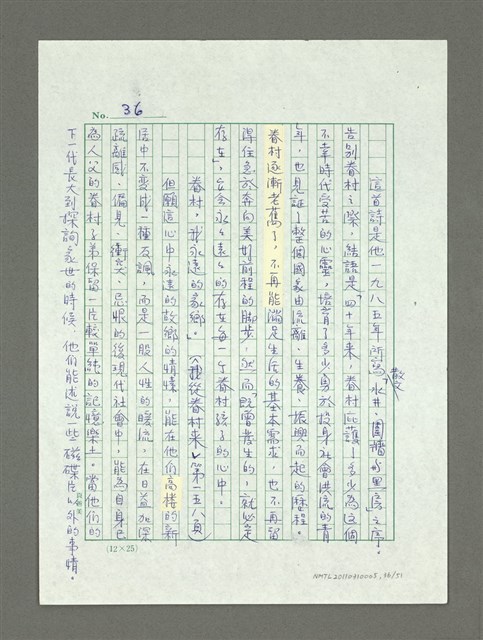 No. 36
這首詩是他一九八五年所寫散文「水井、圍牆、里房」之序。
告別眷村之際,結語是「四十年來,眷村庇護了多少為這個
不幸時代受苦的心靈,培育了多少勇於投身社會洪流的青
年,也見証了整個國家由流離、生養、振興而起的歷程。
眷村逐漸老舊了,不再能滿足生活的基本需求,也不再留
得住急於奔向美好前程的腳步,然而既曾發生的,就必定
存在」,它会永永遠遠的存在每一个眷村孩子的心中。
眷村,我永遠的家鄉。」(《我從眷村來》第一五八頁)
但願這心中永遠的故鄉的情愫,能在他们高樓的新
居中不變成一種反諷,而是一股人性的暖流,在日益加深
疏離感、偏見、衝突、忌恨的後現代社會中,能為自身已
為人父的眷村子弟保留一片較單純的記憶樂土。當他们的
下一代長大到探詢家世的時候,他們能述說一些磁碟片以外的事情。
(12×25)
NMTL20110410005, 36/51